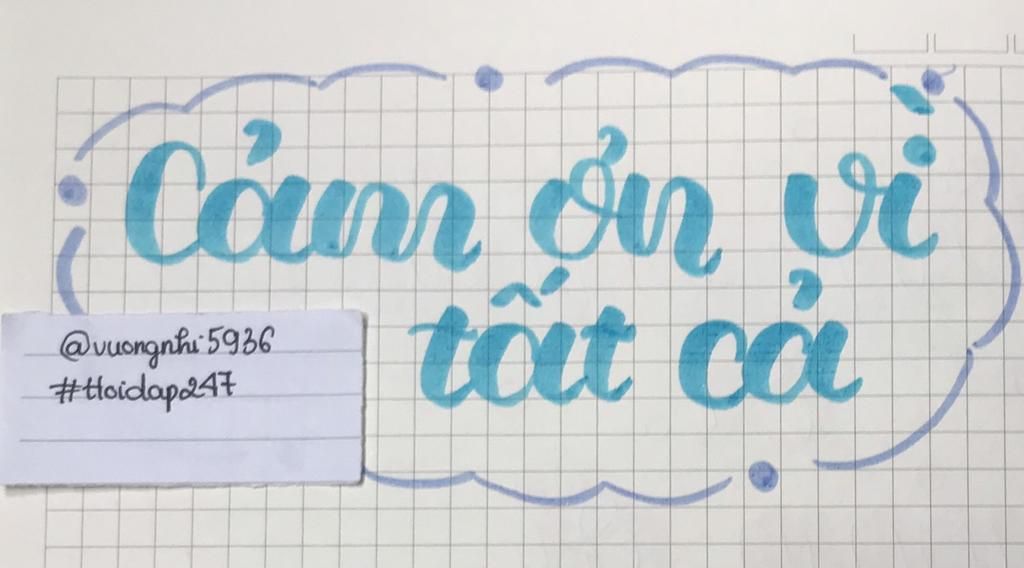 Cảm ơn vì
tất cả
@vuongnhi5936
#Hoidap247